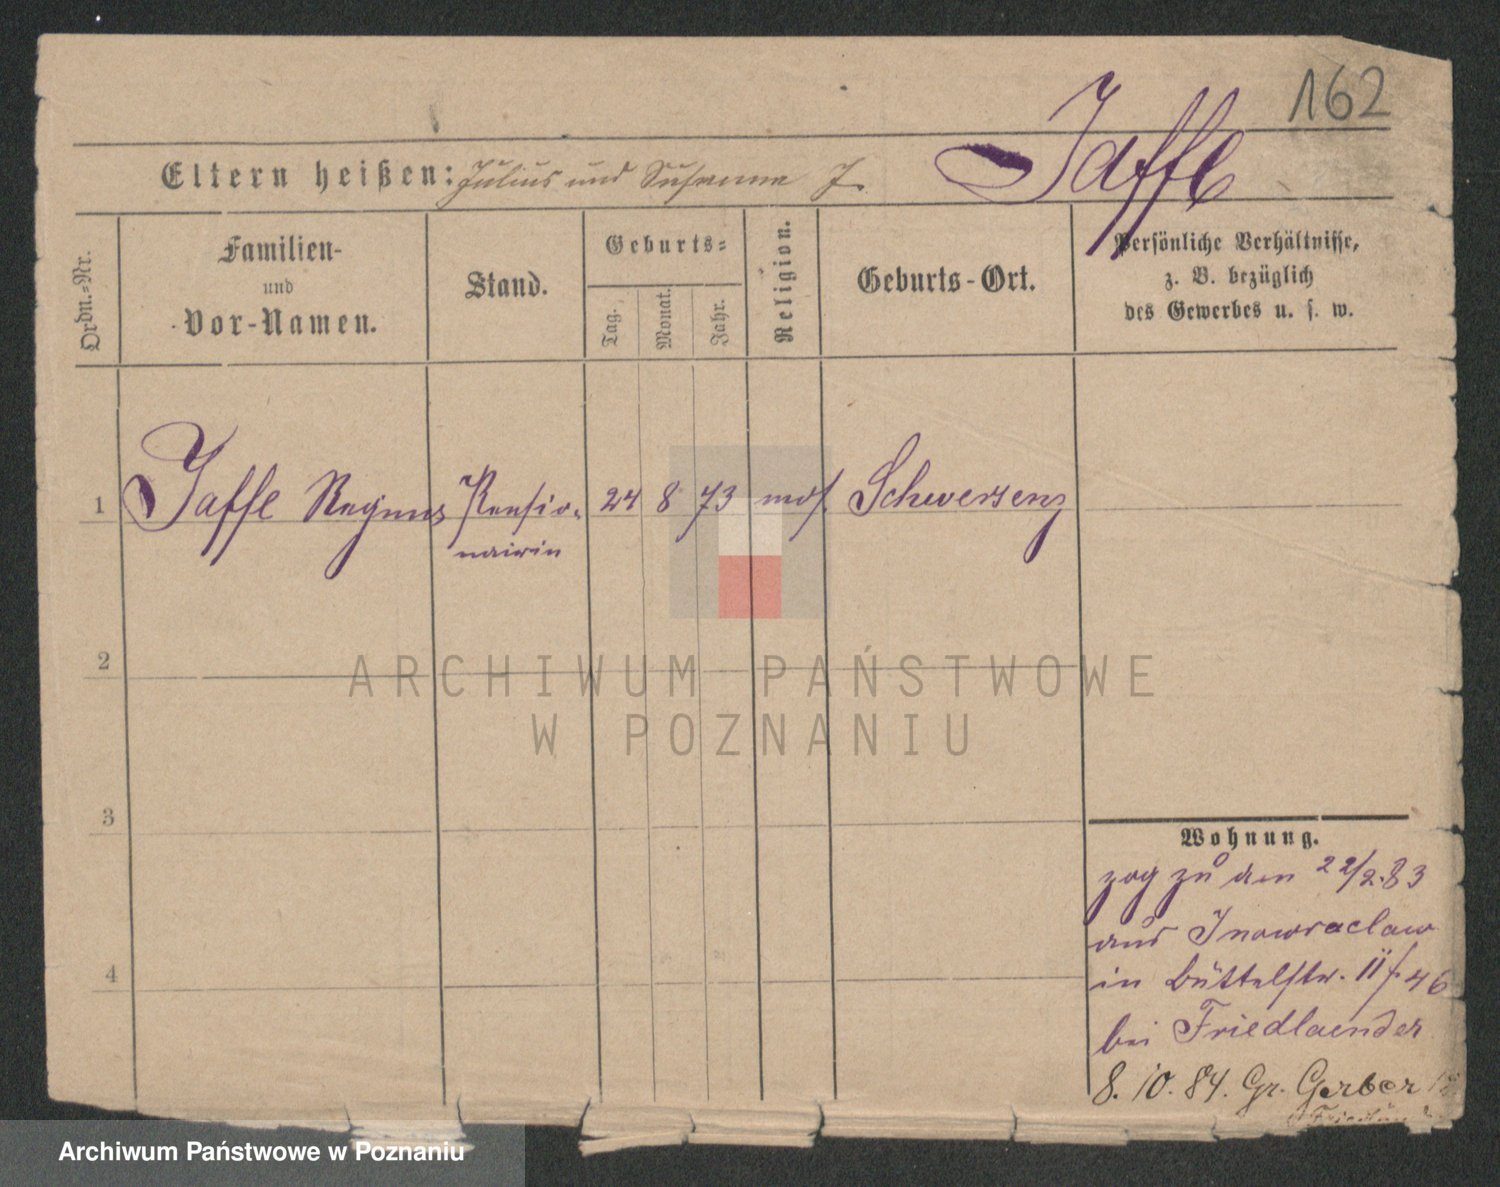 162
Jaffe
Eltern heißen: Julius und Susanna J.
Ordn.-Nr.
Familien-
und
Vor-Namen.
Stand.
Geburts-
Tag.
Monat.
Jahr.
Religion.
Geburts-Ort.
Persönliche Verhältnisse,
z. B. bezüglich
des Gewerbes u. s. w.
1 Jaffe Pensio-
nairin 24 8 73 mos. Schwersenz
2
3
4
Wohnung.
zog zu am 22/2.83
aus Inowraclaw
in Büttelstr. 46
bei Friedlaender
8. 10. 84. Gr. Gerber
ARCHIWUM PAŃSTWOWE
W POZNANIU
Archiwum Państwowe w Poznaniu